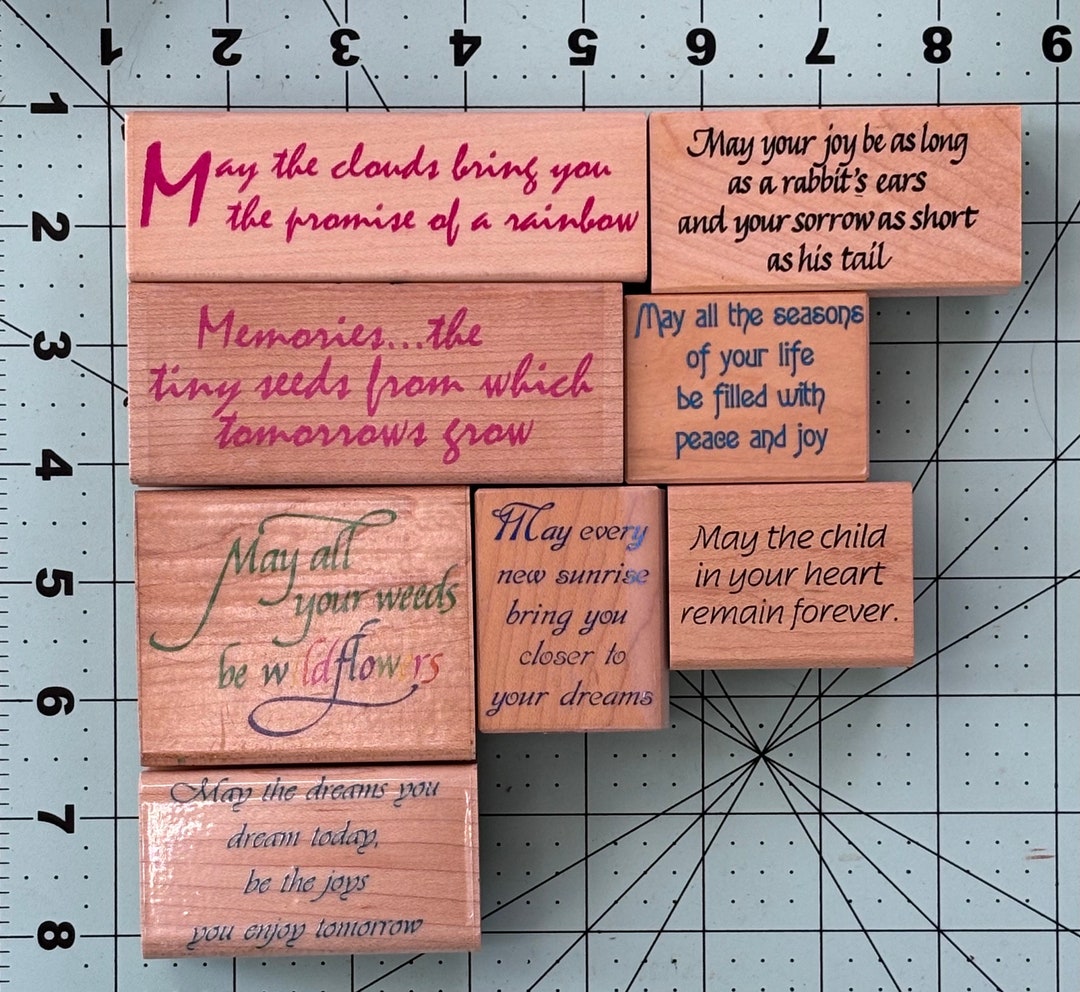 1 2 3 4 5 6 7 8 9
1
2
3
4
5
6
7
8
May the clouds bring you
the promise of a rainbow
May your joy be as long
as a rabbit's ears
and your sorrow as short
as his tail
Memories...the
tiny seeds from which
tomorrows grow
May all the seasons
of your life
be filled with
peace and joy
May all
your weeds
be wildflowers
May every
new sunrise
bring you
closer to
your dreams
May the child
in your heart
remain forever.
May the dreams you
dream today,
be the joys
you enjoy tomorrow